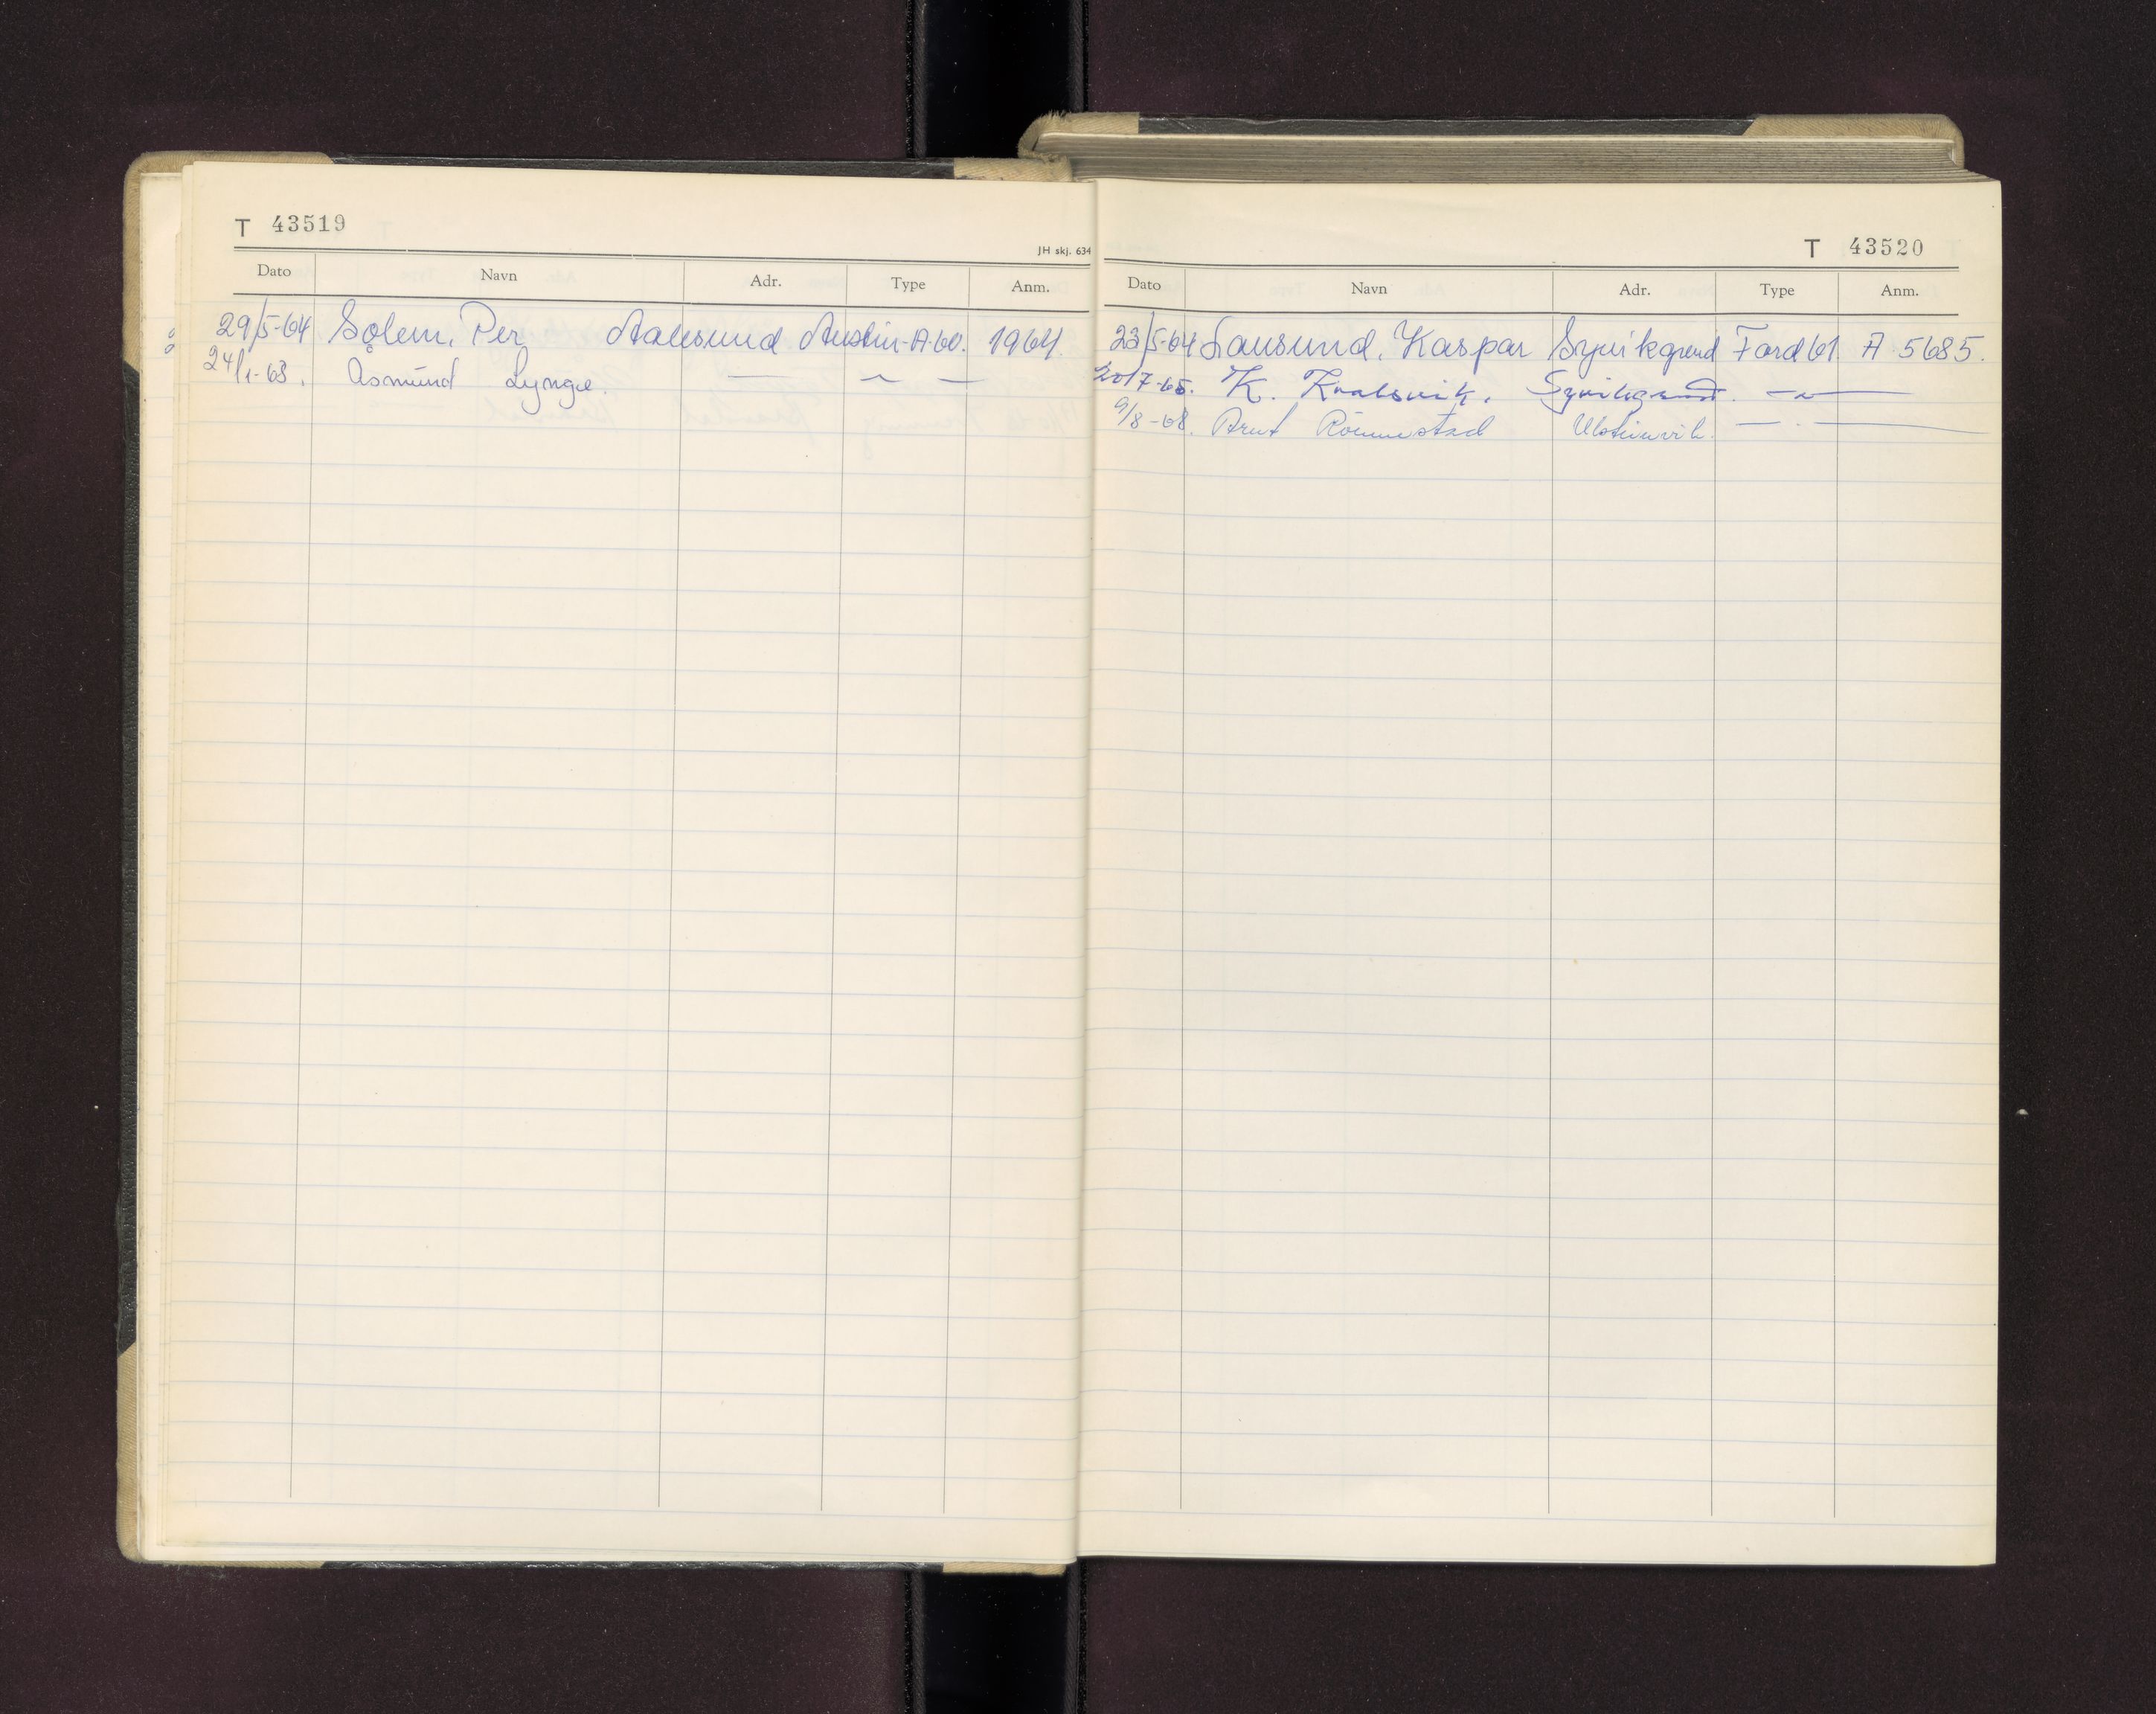 T 43519
JH skj. 634
Dato Navn Adr. Type Anm.
29/5-64 Solem, Per Aalesund Austin-A-60. 1964.
24/1-68. Åsmund Lyngve. — ~ —
T 43520
Dato Navn Adr. Type Anm.
23/5-64 Lausund, Kaspar Syvikgrend Ford 61 A 5685.
20/7-65. K. Kvalsvik. Syvikgrend. — ~ —
9/8-68. Arnt Rönnestad Ulsteinvik. — . —